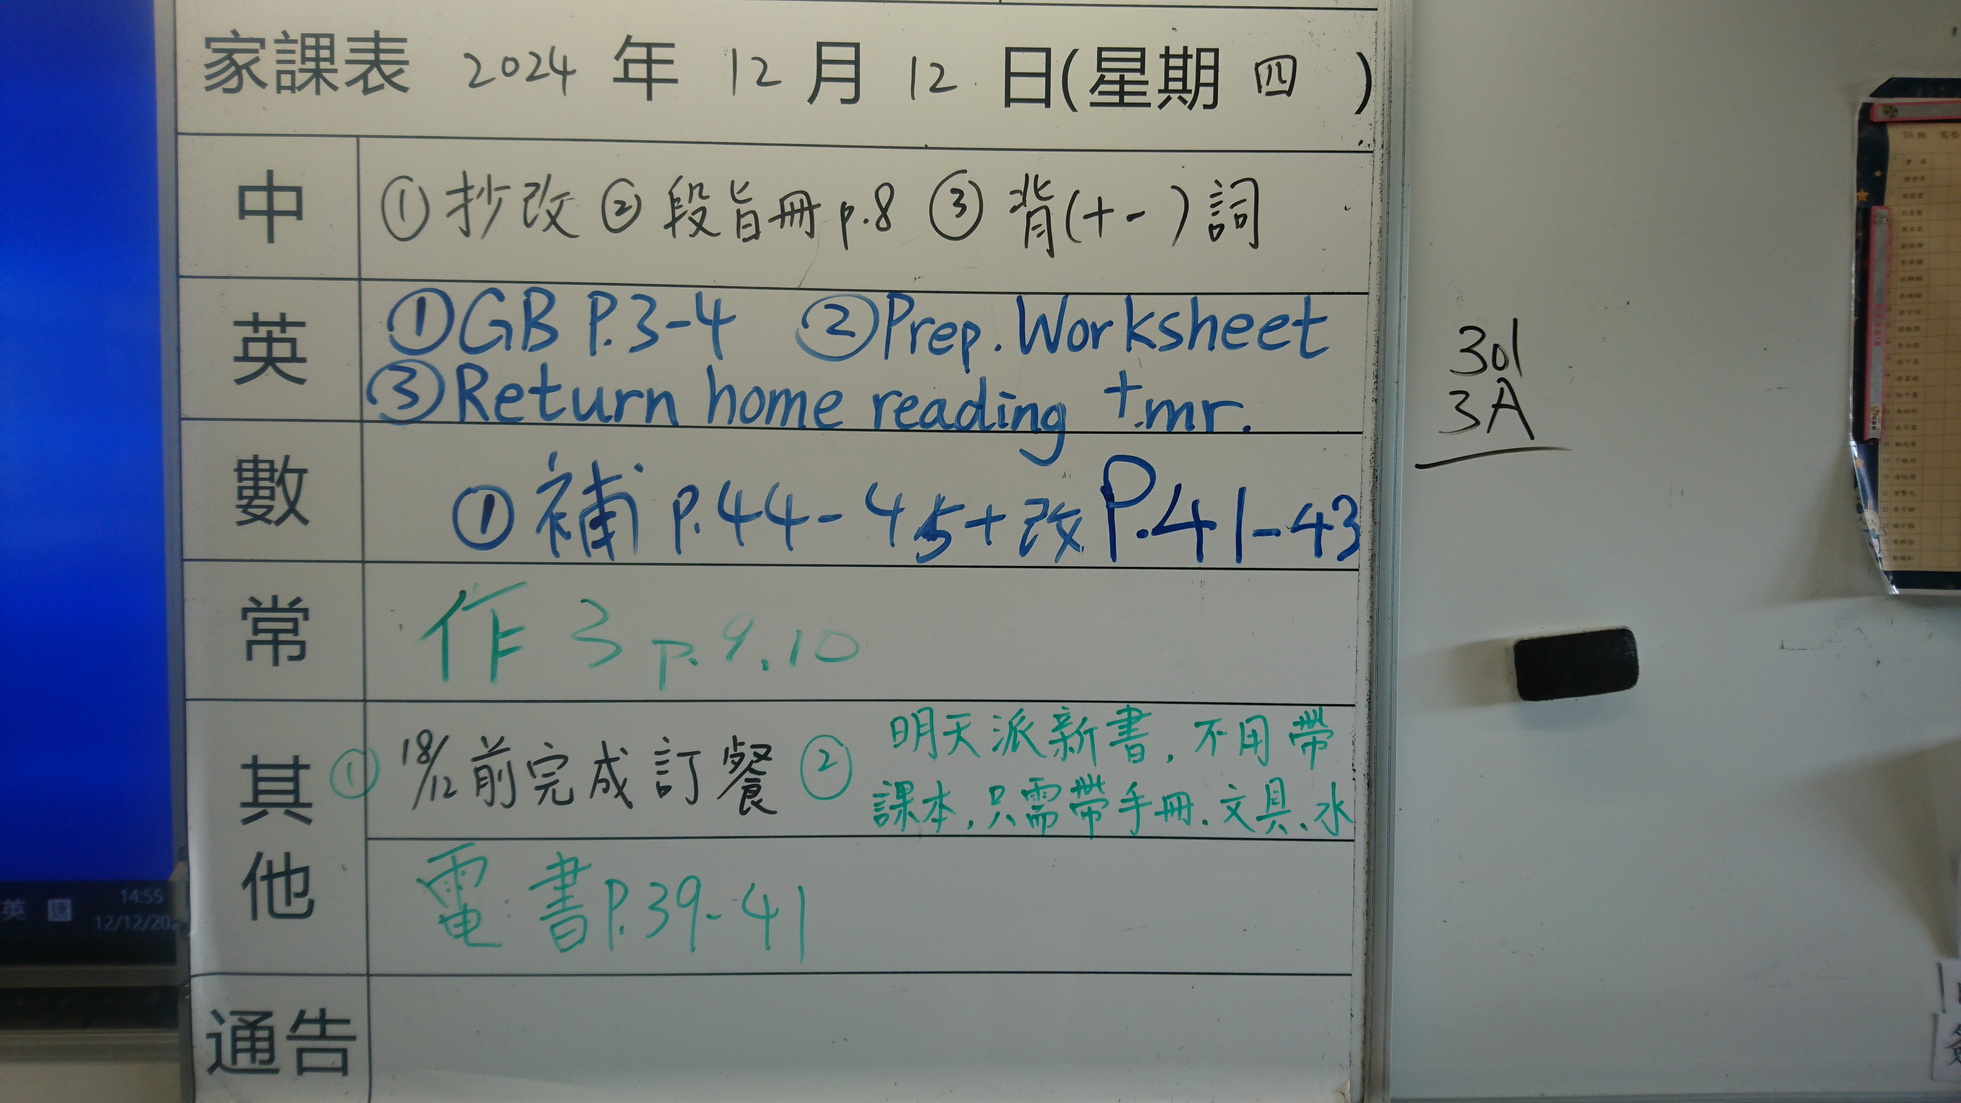 家課表 2024 年 12 月 12 日(星期 四 )
中 ①抄改 ②段旨冊p.8 ③背(十一)詞
英 ①GB P.3-4 ②Prep. Worksheet
③Return home reading t.mr.
數 ①補 P.44-45+改 P.41-43
常 作3 p.9.10
其他 ① 18/12前完成訂餐 ② 明天派新書,不用帶
課本,只需帶手冊.文具.水
電書P.39-41
通告
301
3A
英 速 14:55
12/12/202